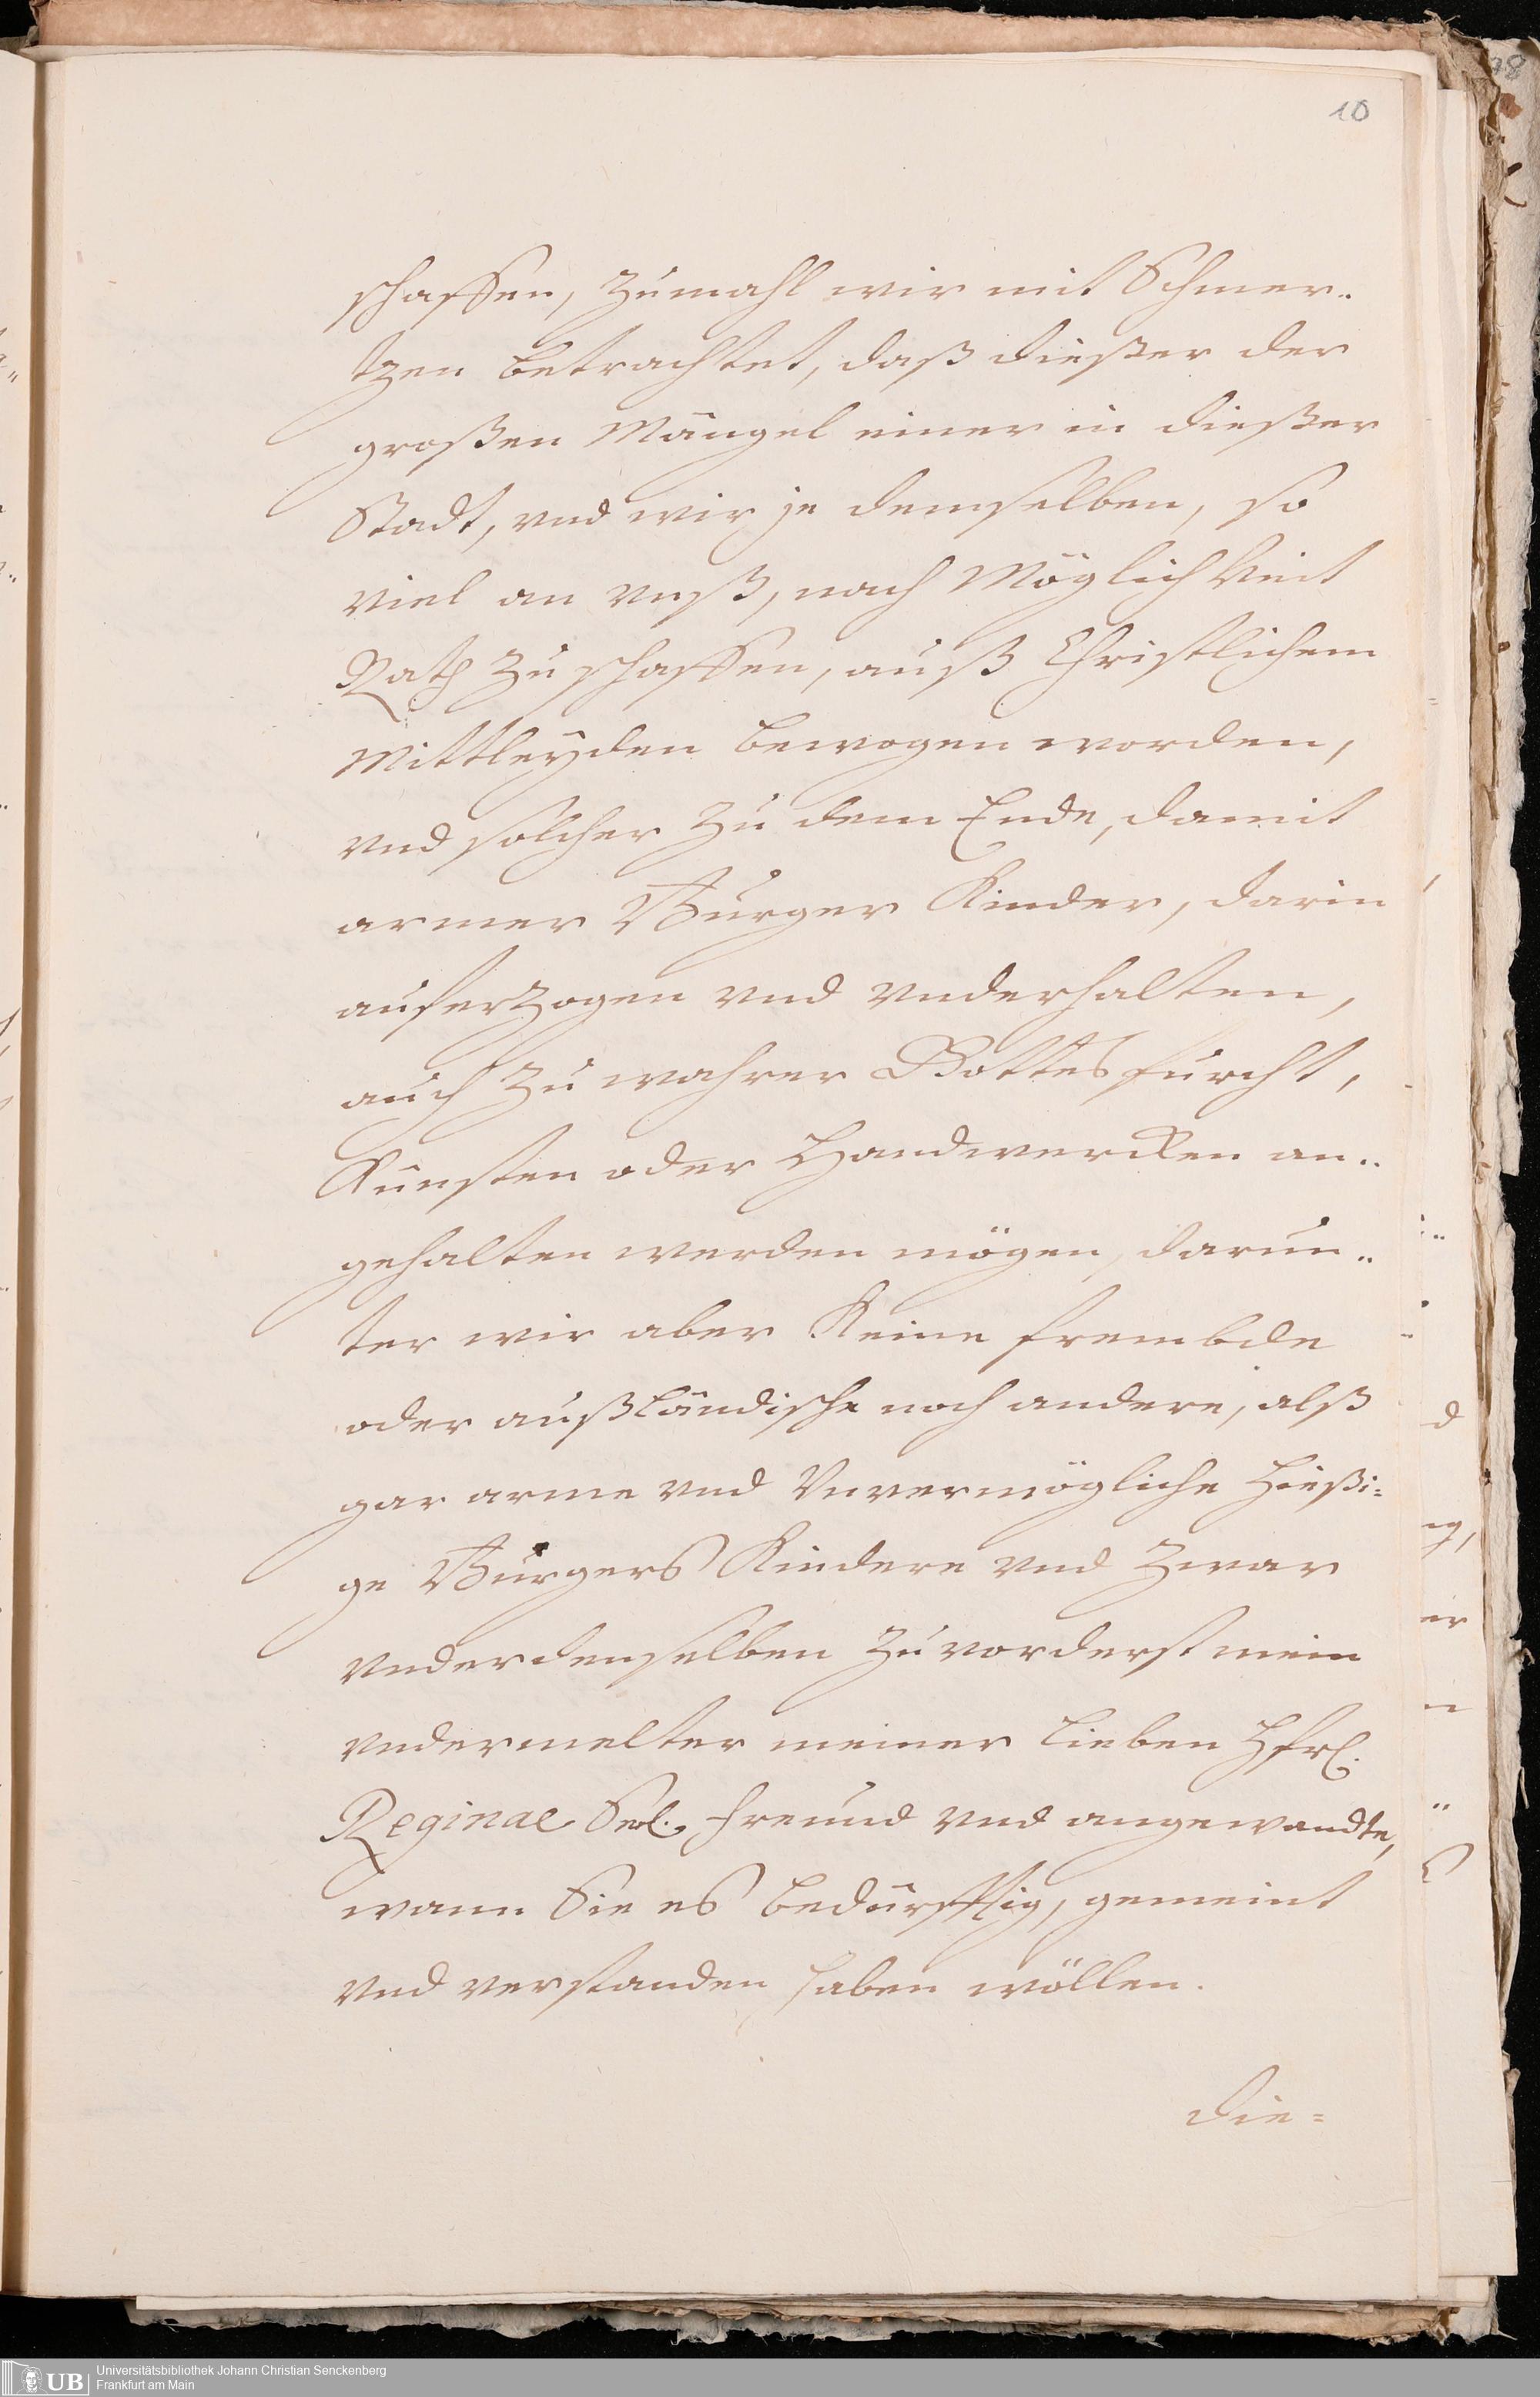 10
schaffen, zumahl wir mit Schmer..
tzen betrachtet, daß dießer der
großen Mängel einer in dießer
Stadt, vnd wir je demselben, so
viel an vnß, nach Möglichkeit
Rath zu schaffen, auß Christlichem
Mittleyden bewogen worden,
vnd solches zu dem Ende, damit
armer Burger Kinder, darin
auferzogen vnd vnderhalten,
auch zu wahrer Gottesfurcht,
Künsten oder Handwercken an..
gehalten werden mögen, darun..
ter wir aber Keine frembde
oder außländische noch andere, alß
gar arme vnd Vnvermögliche hießi=
ge Burgers Kindere vnd zwar
vnderdenselben zuvorderst mein
vndermelter meiner lieben Hfrl.
Reginae Seel. Freund vnd angewandte,
wann Sie es bedürfftig, gemeint
vnd verstanden haben wöllen.
die=
UB
Universitätsbibliothek Johann Christian Senckenberg
Frankfurt am Main